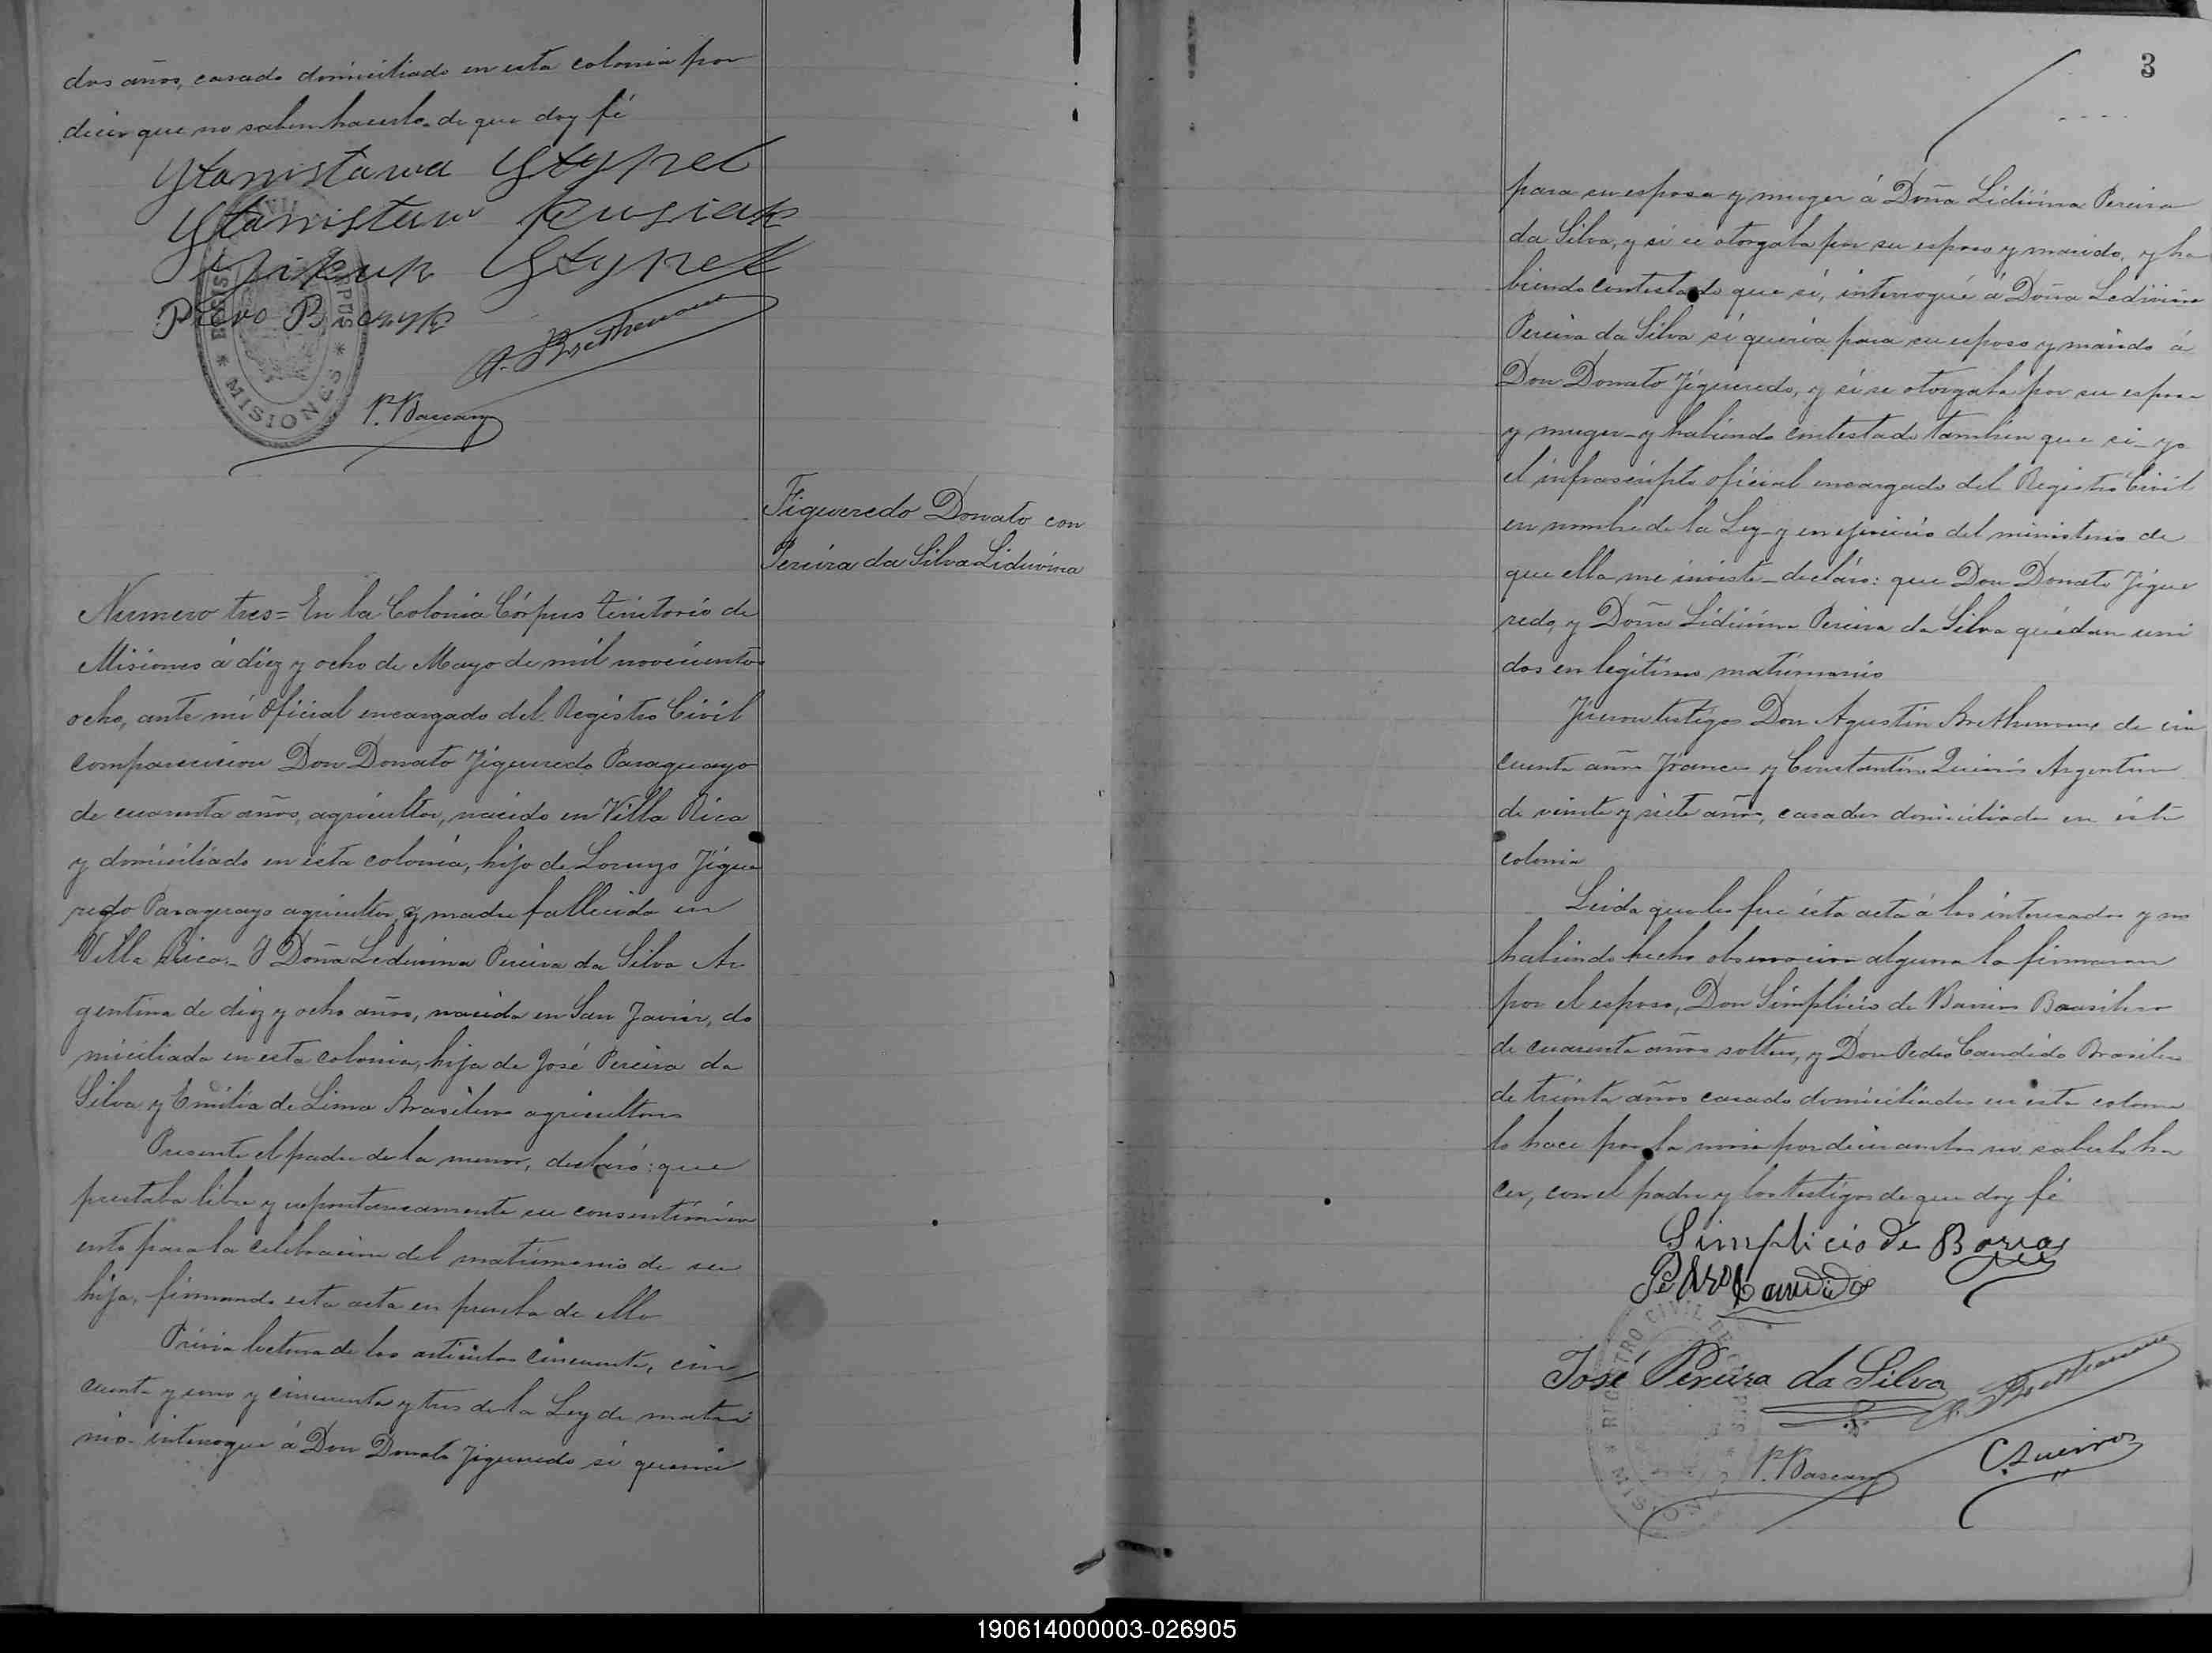 dos años, casado domiciliado en esta colonia por
decir que no saben hacerlo de que doy fé
Stanistawa Stypel
Stanistaw Rusiak
Stypel
P. Bascary
Figueredo Donato con
Pereira da Silva Liduvina
Numero tres= En la Colonia Córpus territorio de
Misiones á diez y ocho de Mayo de mil novecientos
ocho, ante mi Oficial encargado del Registro Civil
comparecieron Don Donato Figueredo Paraguayo
de cuarenta años, agricultor, nacido en Villa Rica
y domiciliado en esta colonia, hijo de Lorenzo Figue
redo Paraguayo agricultor, y madre fallecida en
Villa Rica_ Y Doña Leduvina Pereira da Silva Ar
gentina de diez y ocho años, nacida en San Javier, do
miciliada en esta colonia, hija de José Pereira da
Silva y Emilia de Lima Brasileros agricultores
Presente el padre de la menor, declaró: que
prestaba libre y espontaneamente su consentimi
ento para la celebracion del matrimonio de su
hija, firmando esta acta en prueba de ello
Prévia lectura de los articulos cincuenta, cin
cuenta y uno y cincuenta y tres de la Ley de matri
nio interogué á Don Donato Figueredo si queria
3
para su esposa y muger á Doña Lidivina Pereira
da Silva, y si se otorgaba por su esposo y marido, y ha
biendo contestado que si, interrogué á Doña Ledivina
Pereira da Silva si queria para su esposo y marido á
Don Donato Figueredo, y si se otorgaba por su esposa
y muger_ y habiendo contestado tambien que si_ yo
el infrascripto oficial encargado del Registro Civil
en nombre de la Ley y en ejercicio del ministerio de
que ella me inviste_ declaro: que Don Donato Figue
redo, y Doña Lidivina Pereira da Silva quédan uni
dos en legitimo matrimonio
Fueron testigos Don Agustin Brethenoux de cin
cuenta años Frances y Constantino Queirós Argentino
de veinte y siete años, casados domiciliados en ésta
colonia
Leida que les fue ésta acta á los interesados y no
habiendo hecho observacion alguna la firmaron
por el esposo, Don Simplicio de Barrios Brasilero
de cuarenta años soltero, y Don Pedro Candido Brasilero
de treinta años casado domiciliados en esta colonia
lo hace por la novia por decir ambos no saberlo ha
cer, con el padre y los testigos de que doy fé
Simplicio de
Pedro Candido
José Pereira da Silva
P. Bascary
C. Queiros
REGISTRO CIVIL DE CORPUS * MISIONES *
190614000003-026905